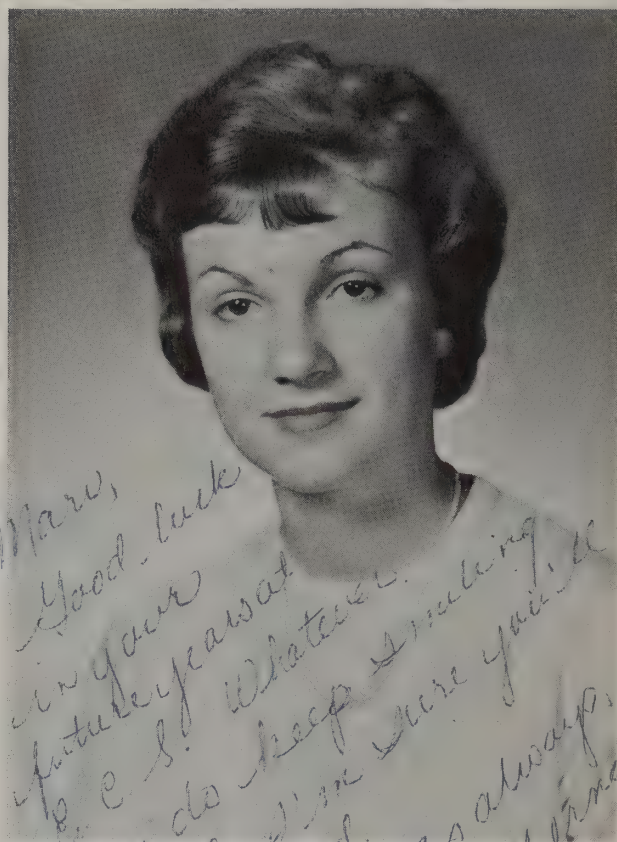 Marv,
Good luck
in your
future years at
E C S. Whatever
do keep smiling
I'm sure you'll
as always,